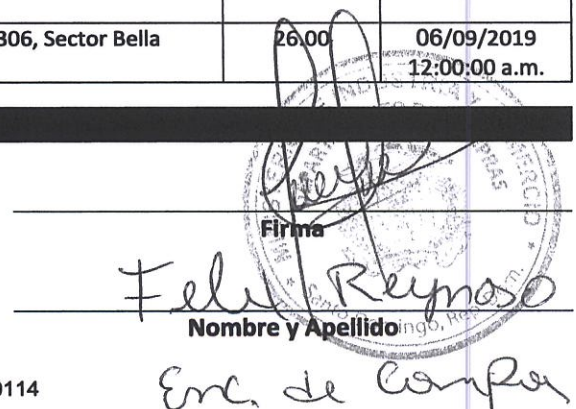 306, Sector Bella 26.00 06/09/2019
12:00:00 a.m.
Firma
Felix Reynoso
Nombre y Apellido
0114 Enc. de Compras